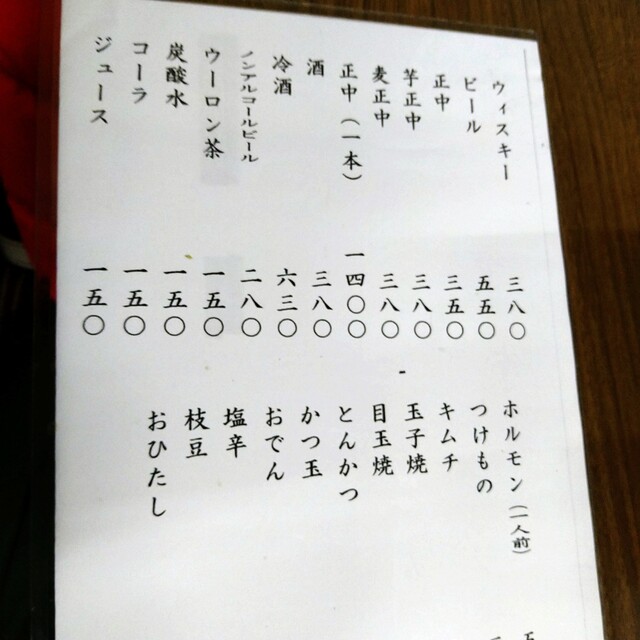 ウィスキー 三八〇
ビール 五五〇
正中 三五〇
芋正中 三八〇
麦正中 三八〇
正中（一本） 一四〇〇
酒 三八〇
冷酒 六三〇
ノンアルコールビール 二八〇
ウーロン茶 一五〇
炭酸水 一五〇
コーラ 一五〇
ジュース 一五〇
ホルモン（一人前）
つけもの
キムチ
玉子焼
目玉焼
とんかつ
かつ玉
おでん
塩辛
枝豆
おひたし